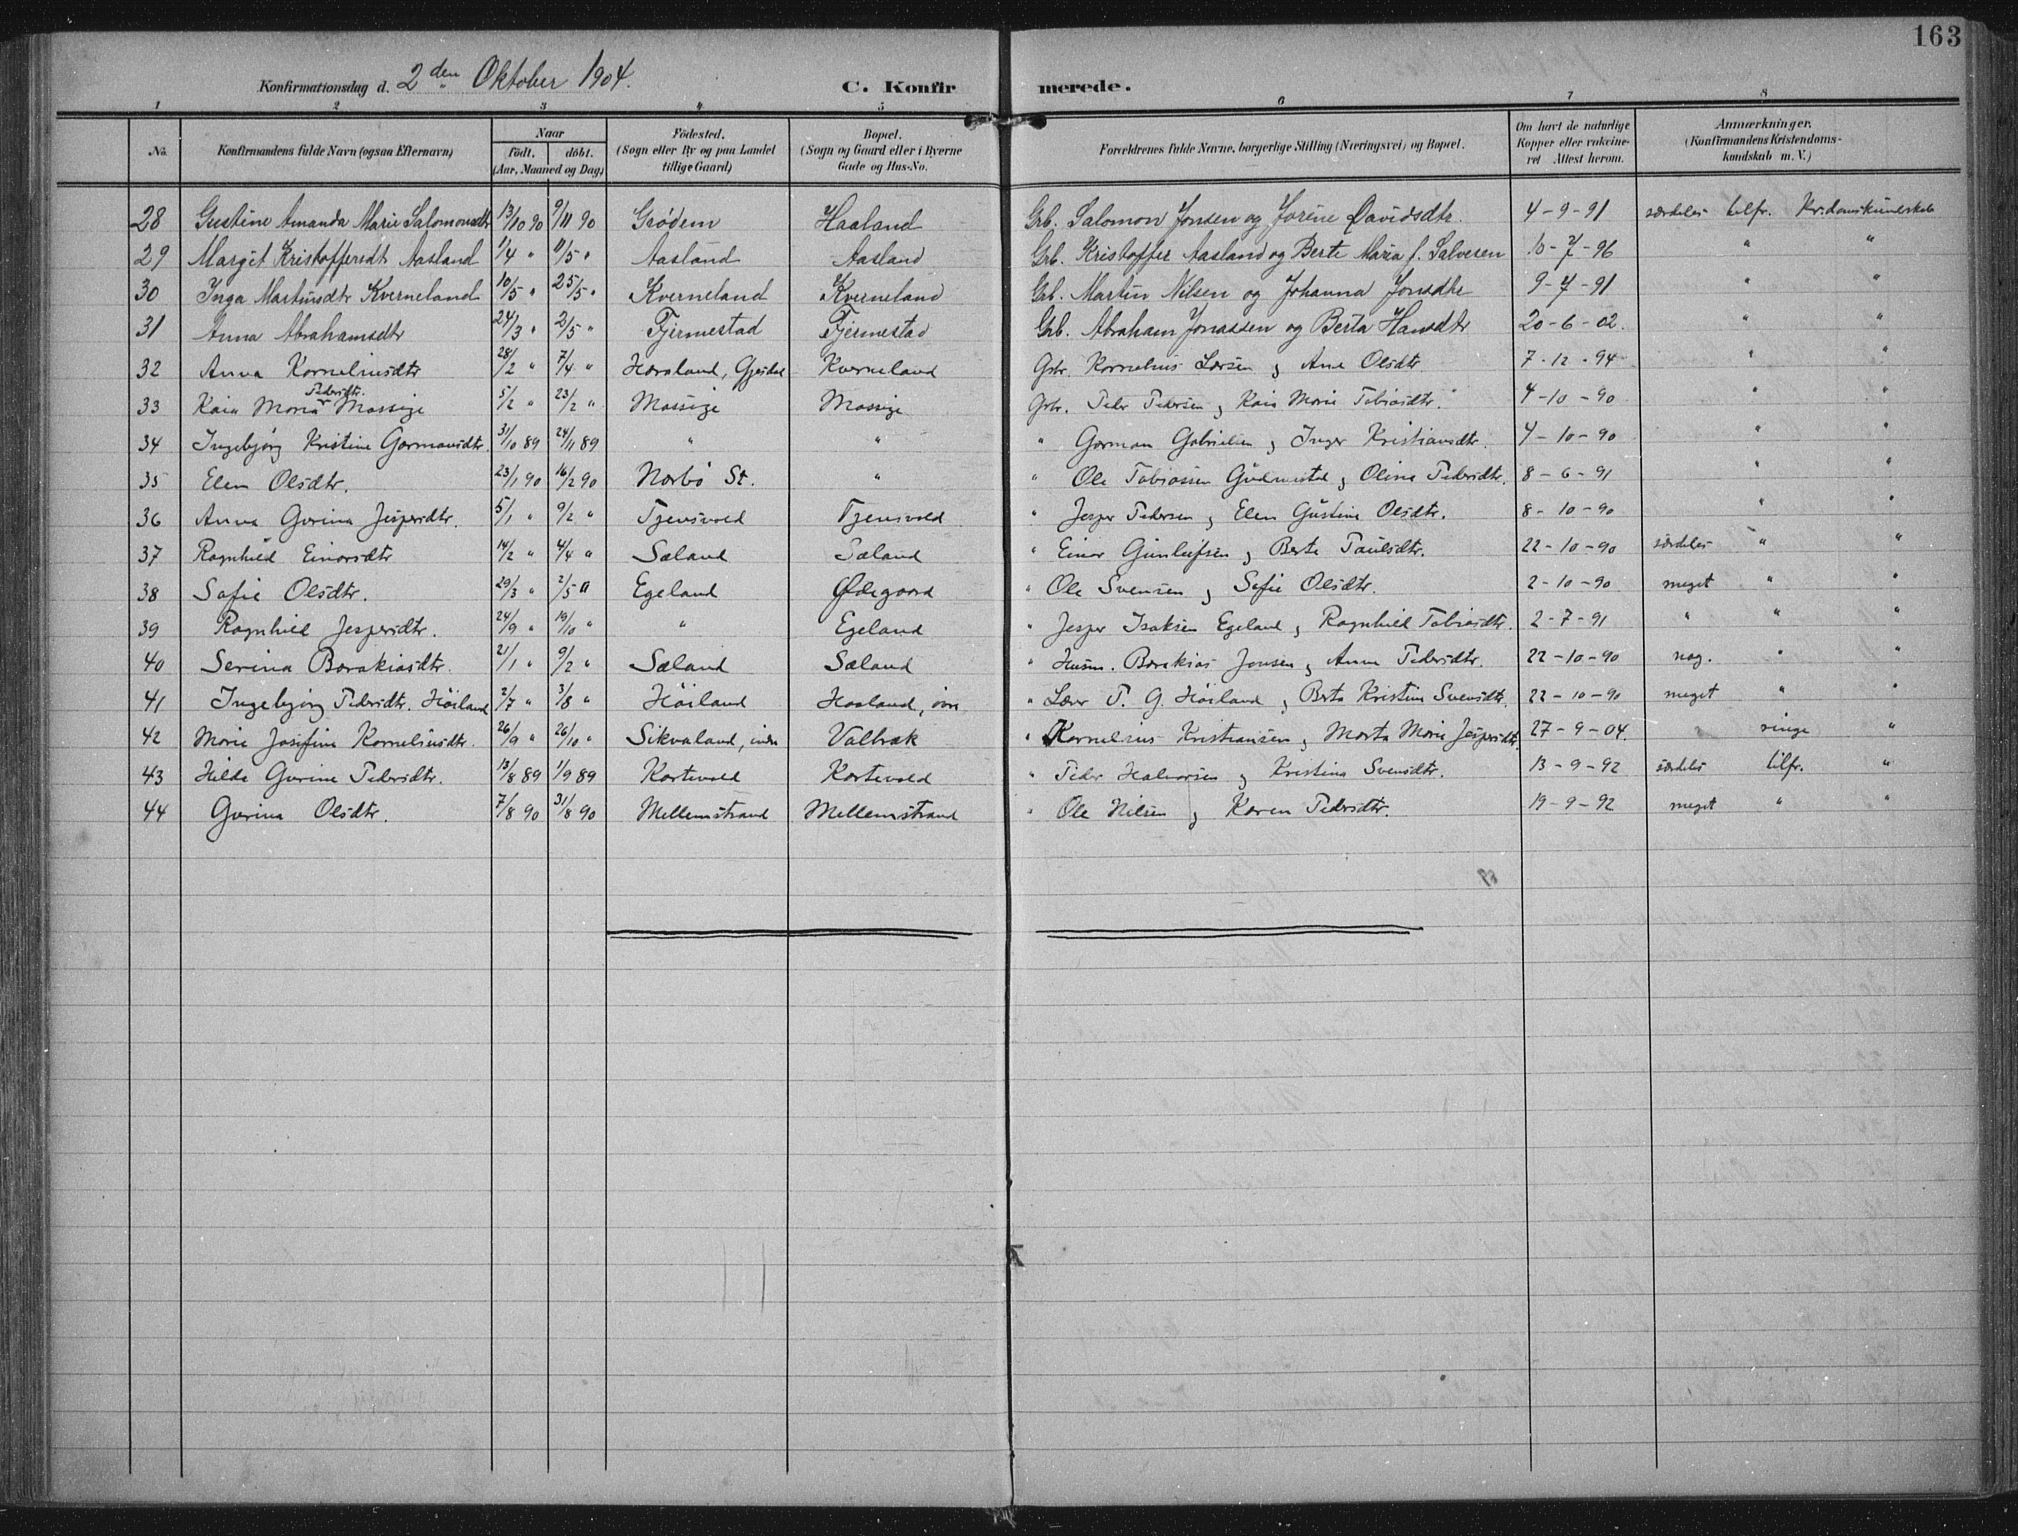 163
Konfirmationsdag d. 2den Oktober 1904.
C. Konfirmerede.
1 2 3 4 5 6 7 8
No. Konfirmandens fulde Navn (ogsaa Efternavn) Naar født. døbt. (Aar, Maaned og Dag) Fødested. (Sogn eller By og paa Landet tillige Gaard) Bopæl. (Sogn og Gaard eller i Byerne Gade og Hus-No. Forældrenes fulde Navne, borgerlige Stilling (Næringsvei) og Bopæl. Om havt de naturlige Kopper eller vakcineret. Attest herom. Anmærkninger. (Konfirmandens Kristendomskundskab m. V.)
28 Gustine Amanda Marie Salomonsdtr 13/10 90 9/11 90 Grødem Haaland Grb. Salomon Jonsen og Jorine Davidsdtr. 4-9-91 særdeles tilfr. Kr.domskundskab
29 Margit Kristoffersdt Aasland 1/4 " 11/5 " Aasland Aasland Grb. Kristoffer Aasland og Berte Maria f. Salvesen 10-7-96 " "
30 Inga Martinsdtr Kverneland 10/5 " 25/5 " Kverneland Kverneland Grb. Martin Nilsen og Johanna Jonsdtr 9-7-91 " "
31 Anna Abrahamsdtr 24/3 " 2/5 " Fjermestad Fjermestad Grb. Abraham Jonassen og Berta Hansdtr 20-6-02. " "
32 Anna Kornelíusdtr 28/2 " 7/4 " Høvland, Gjesdal Kverneland Gbr. Kornelius Larsen g Ane Olsdtr 7-12-94 " "
33 Kaia Maria Pedersdtr. Massige 5/2 " 23/2 " Massige Massige Gbr. Peder Pedersen g Kaia Marie Tobiasdtr. 4-10-90 " "
34 Ingebjørg Kristine Gormansdtr. 31/10 89 24/11 89 " " " Gorman Gabrielsen g Inger Kristiansdtr. 4-10-90 " "
35 Elen Olsdtr. 23/1 90 16/2 90 Nærbø St. " " Ole Tobiassen Gudmestad g Olina Pedersdtr. 8-6-91 " "
36 Anna Gurina Jespersdtr. 5/1 " 9/2 " Tjensvold Tjensvold " Jesper Pedersen g Elen Gustine Olsdtr. 8-10-90 " "
37 Ragnhild Einarsdtr 14/2 " 4/4 " Sæland Sæland " Einar Gunleifsen g Berte Paulsdtr. 22-10-90 særdeles " "
38 Sofie Olsdtr. 29/3 " 2/5 " Egeland Ødegaard " Ole Svensen g Sofie Olsdtr. 2-10-90 meget " "
39 Ragnhild Jespersdtr. 24/9 " 19/10 " " Egeland " Jesper Isaksen Egeland g Ragnhild Tobiasdtr. 2-7-91 " " "
40 Serina Barakiasdtr. 21/1 " 9/2 " Sæland Sæland " Husm. Barakias Jonsen g Anna Pedersdtr. 22-10-90 nog. " "
41 Ingebjørg Pedersdtr. Høiland 2/7 " 3/8 " Høiland Haaland, øvre " Lærer P. G. Høiland g Berta Kristine Svensdtr. 22-10-90 meget " "
42 Marie Josefine Korneliusdtr. 26/9 " 26/10 " Sikvaland, indre Valbræk " Kornelius Kristiansen g Marta Marie Jespersdtr. 27-9-04. " ringe "
43 Hilda Gurine Pedersdtr. 13/8 89 1/9 89 Kartevold Kartevold " Peder Halvorsen g Kristina Svensdtr. 13-9-92 særdeles tilfr. "
44 Gurina Olsdtr. 7/8 90 31/8 90 Mellemstrand Mellemstrand " Ole Nilsen g Karen Pedersdtr. 19-9-92 meget " "